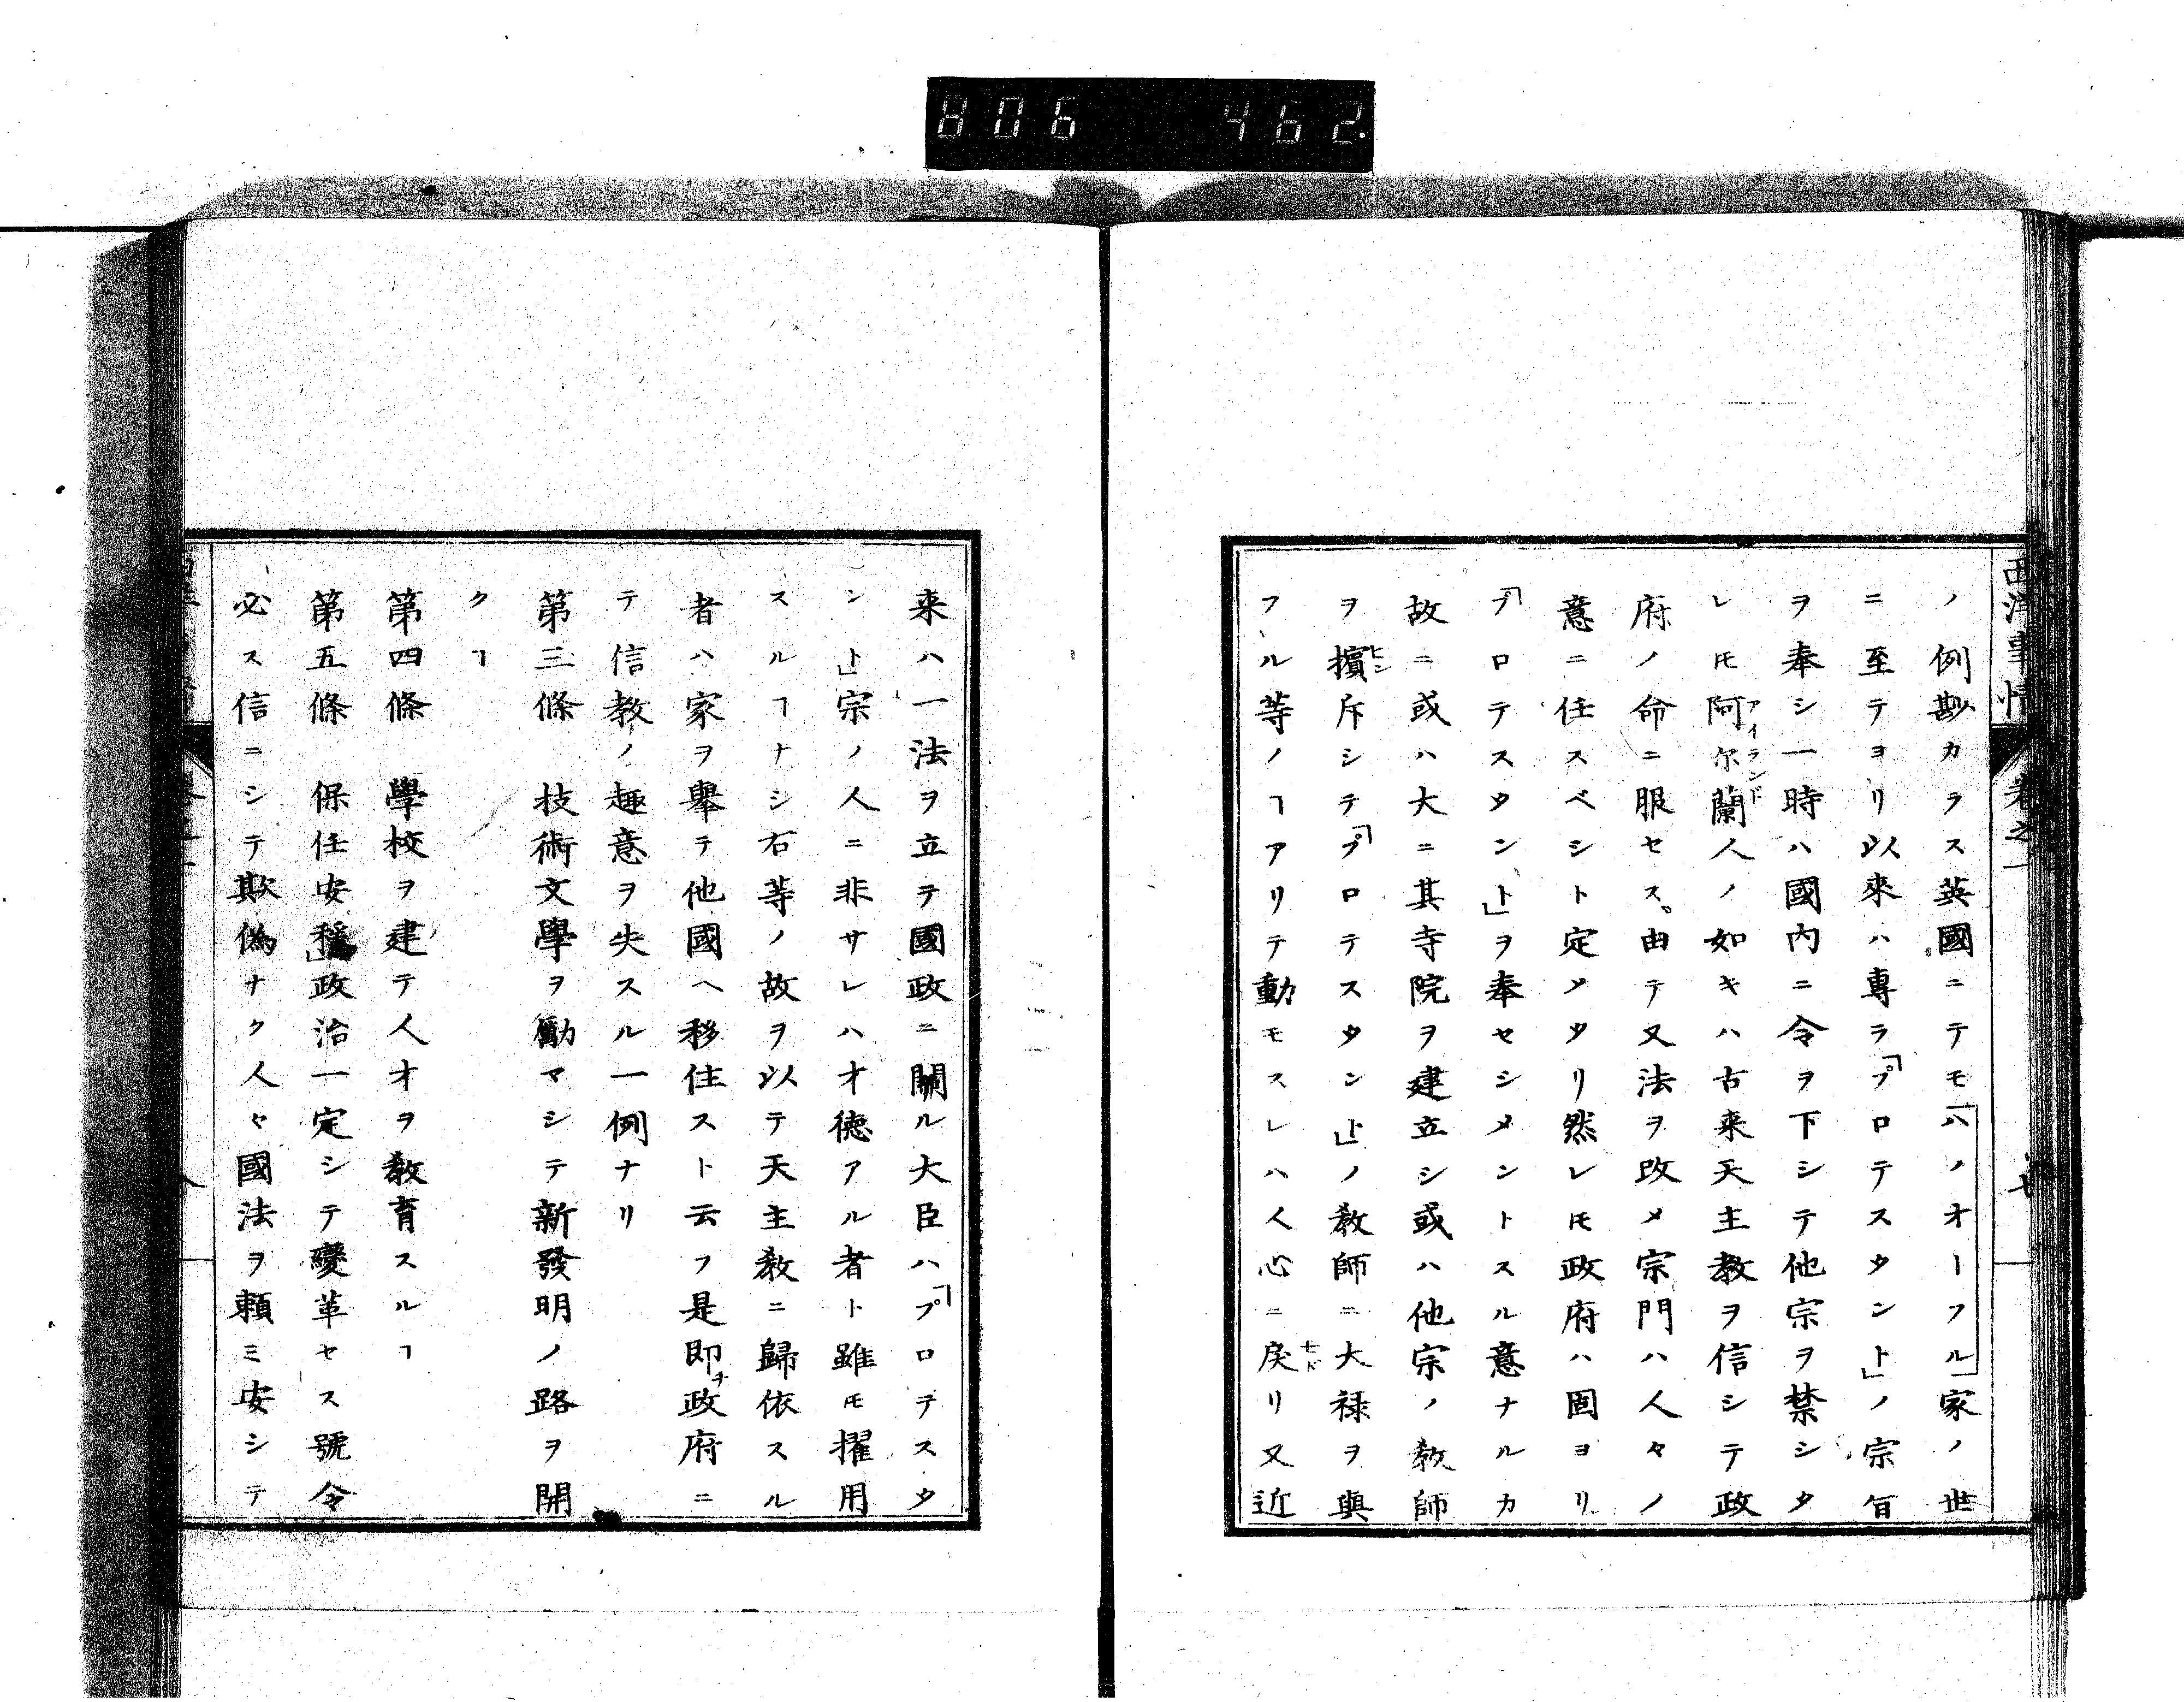 806 462.
西洋事情 卷之一
ノ例尠カラス英國ニテモ「ハノオーフル」家ノ世
ニ至テヨリ以來ハ専ラ「プロテスタント」ノ宗旨
ヲ奉シ一時ハ國内ニ令ヲ下シテ他宗ヲ禁シタ
レㇳモ阿尓蘭人ノ如キハ古来天主教ヲ信シテ政
アイランド
府ノ命ニ服セス。由テ又法ヲ改メ宗門ハ人々ノ
意ニ任スベシト定メタリ然レㇳモ政府ハ固ヨリ
「プロテスタント」ヲ奉セシメントスル意ナルカ
故ニ或ハ大ニ其寺院ヲ建立シ或ハ他宗ノ教師
ヲ擯斥シテ「プロテスタント」ノ教師ニ大禄ヲ與
ヒン
フル等ノヿアリテ動モスレハ人心ニ戻リ又近
モド
来ハ一法ヲ立テ國政ニ關ル大臣ハ「プロテスタ
ント」宗ノ人ニ非サレハ才徳アル者ト雖モ擢用
スルヿナシ右等ノ故ヲ以テ天主教ニ歸依スル
者ハ家ヲ舉テ他國ヘ移住スト云フ是即チ政府ニ
テ信教ノ趣意ヲ失スル一例ナリ
第三條 技術文學ヲ勵マシテ新發明ノ路ヲ開
クヿ
第四條 學校ヲ建テ人才ヲ教育スルヿ
第五條 保任安穏」政治一定シテ變革セス號令
必ス信ニシテ欺偽ナク人々國法ヲ頼ミ安シテ